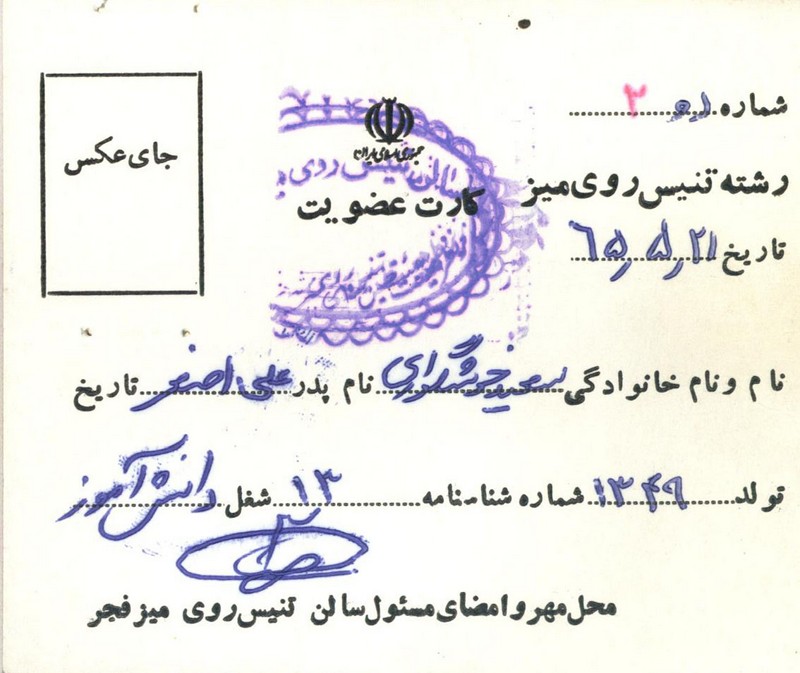 شماره ۳
جای عکس
جمهوری اسلامی ایران
رشته تنیس روی میز
کارت عضویت
تاریخ ۶۵٫۵٫۲۱
نام و نام خانوادگی سعید نام پدر علی اصغر تاریخ
تولد ۱۳۴۹ شماره شناسنامه ۱۳ شغل دانش آموز
محل مهر و امضای مسئول سالن تنیس روی میز فجر